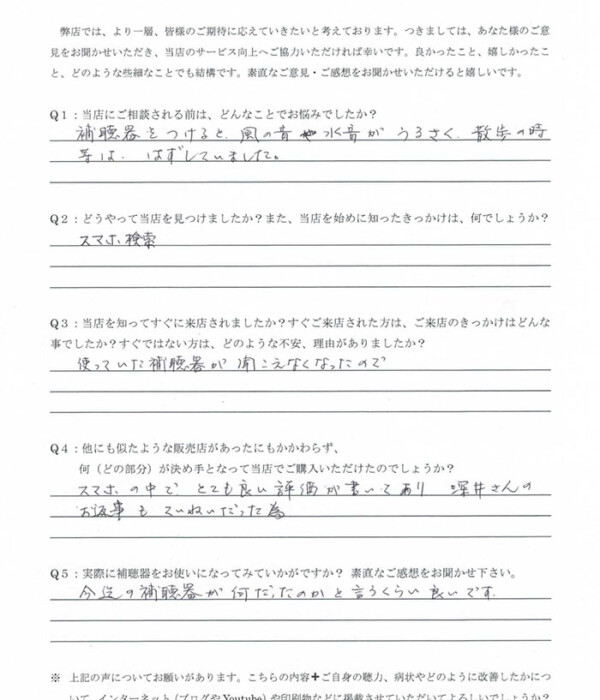 弊店では、より一層、皆様のご期待に応えていきたいと考えております。つきましては、あなた様のご意
見をお聞かせいただき、当店のサービス向上へご協力いただければ幸いです。良かったこと、嬉しかったこ
と、どのような些細なことでも結構です。素直なご意見・ご感想をお聞かせいただけると嬉しいです。
Q1：当店にご相談される前は、どんなことでお悩みでしたか？
補聴器をつけると、風の音や水音がうるさく、散歩の時
等は、はずしていました。
Q2：どうやって当店を見つけましたか？また、当店を始めに知ったきっかけは、何でしょうか？
スマホ検索
Q3：当店を知ってすぐに来店されましたか？すぐご来店された方は、ご来店のきっかけはどんな
事でしたか？すぐではない方は、どのような不安、理由がありましたか？
使っていた補聴器が聞こえなくなったので
Q4：他にも似たような販売店があったにもかかわらず、
何（どの部分）が決め手となって当店でご購入いただけたのでしょうか？
スマホの中でとても良い評価が書いてあり 深井さんの
お返事もていねいだった為
Q5：実際に補聴器をお使いになってみていかがですか？ 素直なご感想をお聞かせ下さい。
今迄の補聴器が何だったのかと言うくらい良いです。
※ 上記の声についてお願いがあります。こちらの内容＋ご自身の聴力、病状やどのように改善したかにつ
いて、インターネット（ブログやYoutube）や印刷物などに掲載させていただいてよろしいでしょうか？